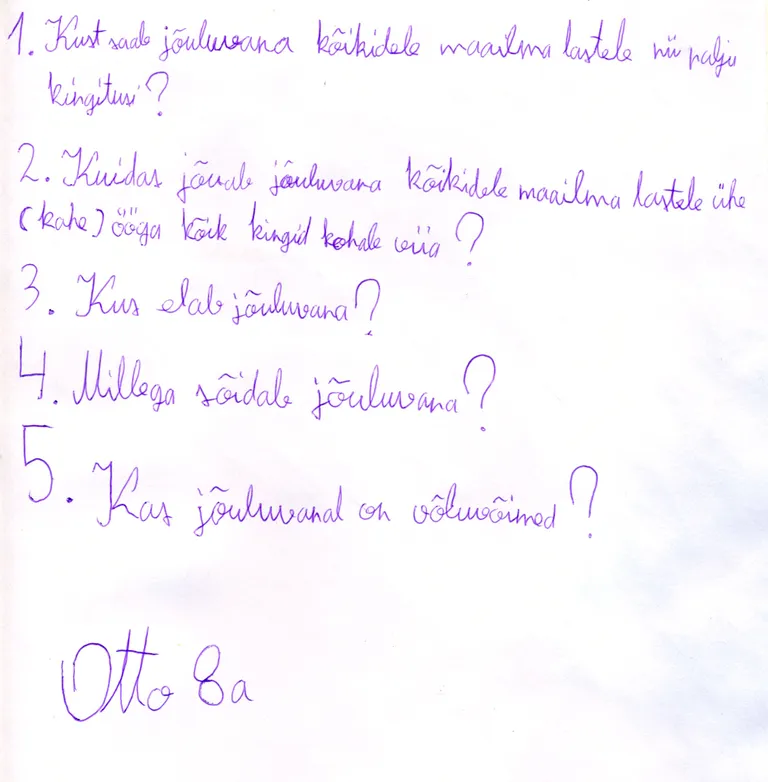 1. Kust saab jõuluvana kõikidele maailma lastele nii palju
kingitusi?
2. Kuidas jõuab jõuluvana kõikidele maailma lastele ühe
(kahe) ööga kõik kingid kohale viia?
3. Kus elab jõuluvana?
4. Millega sõidab jõuluvana?
5. Kas jõuluvanal on võluvõimed?
Otto 8a